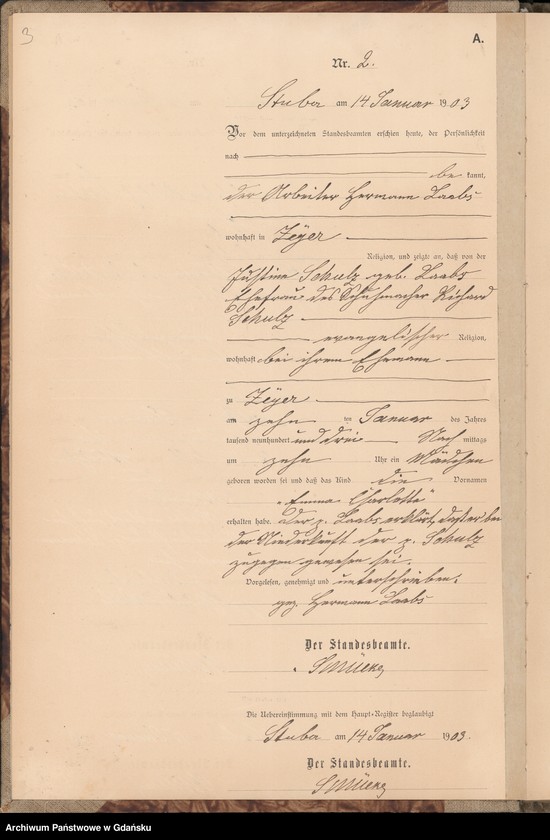 3
A.
Nr. 2.
Stuba am 14 Januar 1903
Vor dem unterzeichneten Standesbeamten erschien heute, der Persönlichkeit
nach
be kannt,
der Arbeiter Hermann Laabs
wohnhaft in Zeyer
Religion, und zeigte an, daß von der
Justina Schulz geb. Laabs
Ehefrau des Schuhmacher Richard
Schulz
evangelischer Religion,
wohnhaft bei ihrem Ehemann
zu Zeyer
am zehn ten Januar des Jahres
tausend neunhundert und drei Nach mittags
um zehn Uhr ein Mädchen
geboren worden sei und daß das Kind die Vornamen
"Emma Charlotte"
erhalten habe. Der p. Laabs erklärt, daß er bei
der Niederkunft der p. Schulz
zugegen gewesen sei.
Vorgelesen, genehmigt und unterschrieben.
gez. Hermann Laabs
Der Standesbeamte.
Die Uebereinstimmung mit dem Haupt-Register beglaubigt
Stuba am 14 Januar 1903.
Der Standesbeamte.
Archiwum Państwowe w Gdańsku